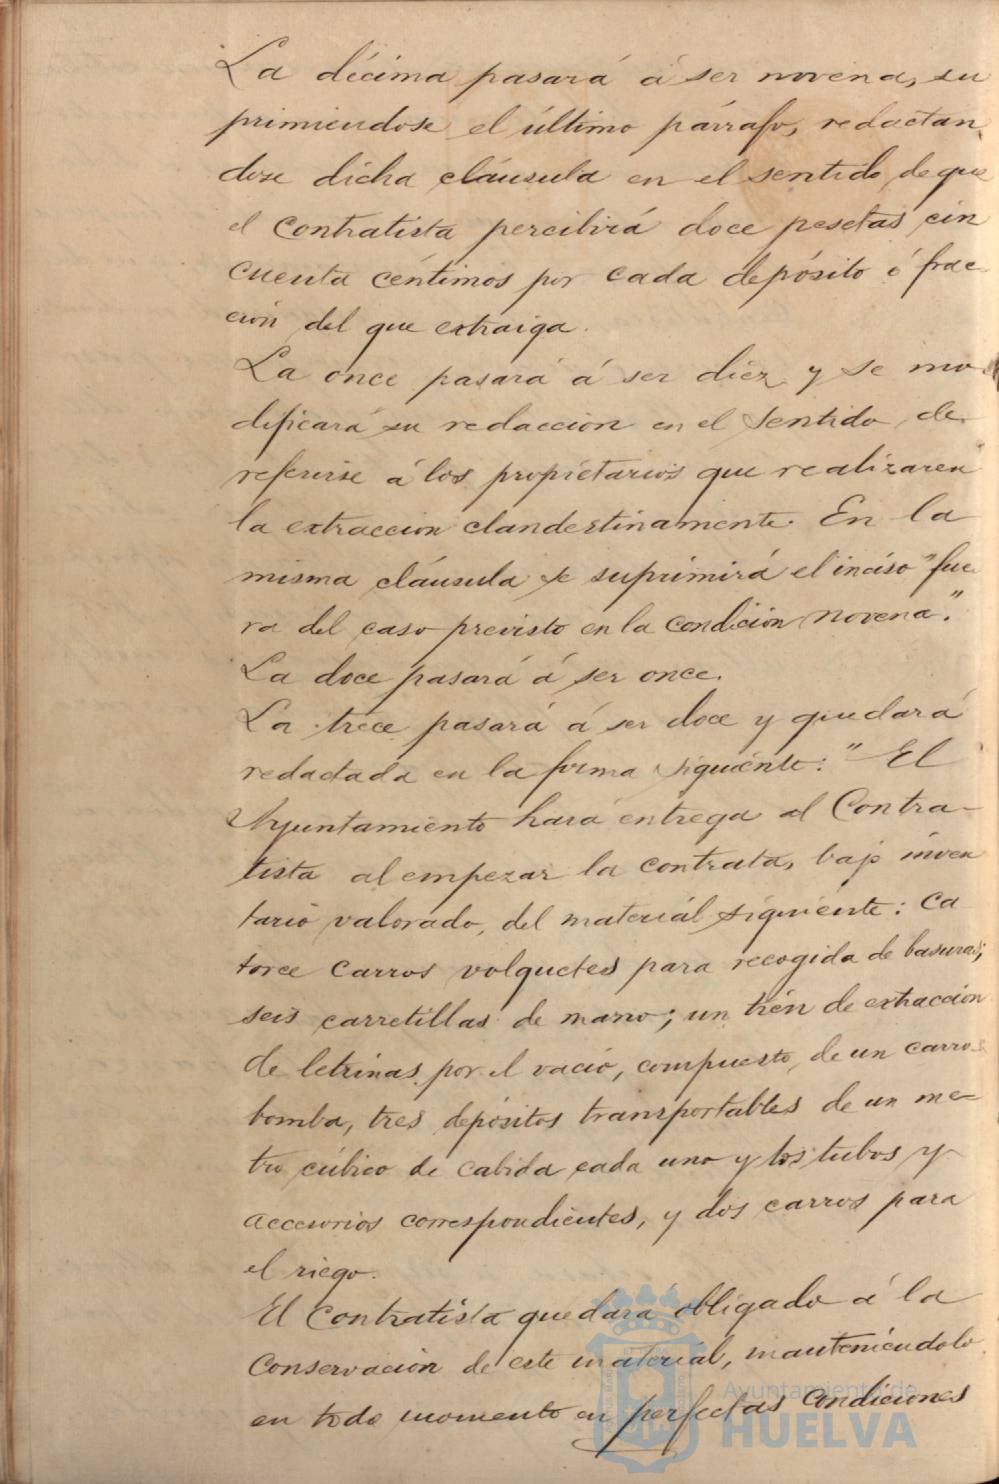 La décima pasará á ser novena, su
primiendose el último párrafo, redactan
dose dicha cláusula en el sentido de que
el contratista percibirá doce pesetas cin
cuenta céntimos por cada depósito ó frac-
ción del que extraiga.
La once pasará á ser diez y se mo-
dificará su redaccion en el sentido de
referirse á los propietarios que realizaren
la extraccion clandestinamente. En la
misma cláusula se suprimirá el inciso "fue
ra del caso previsto en la condición novena".
La doce pasará á ser once.
La trece pasará á ser doce y quedará
redactada en la forma siguiente: "El
Ayuntamiento hará entrega al Contra-
tista al empezar la contrata, bajo inven
tario valorado, del material siguiente: Ca
torce carros volquetes para recogida de basuras;
seis carretillas de mano; un trén de extracción
de letrinas por el vacío, compuesto de un carro-
bomba, tres depósitos transportables de un me-
tro cúbico de cabida cada uno y los tubos y
accesorios correspondientes, y dos carros para
el riego.
El Contratista quedará obligado á la
conservación de este material, manteniéndolo
en todo momento en perfectas condiciones
Ayuntamiento de
HUELVA